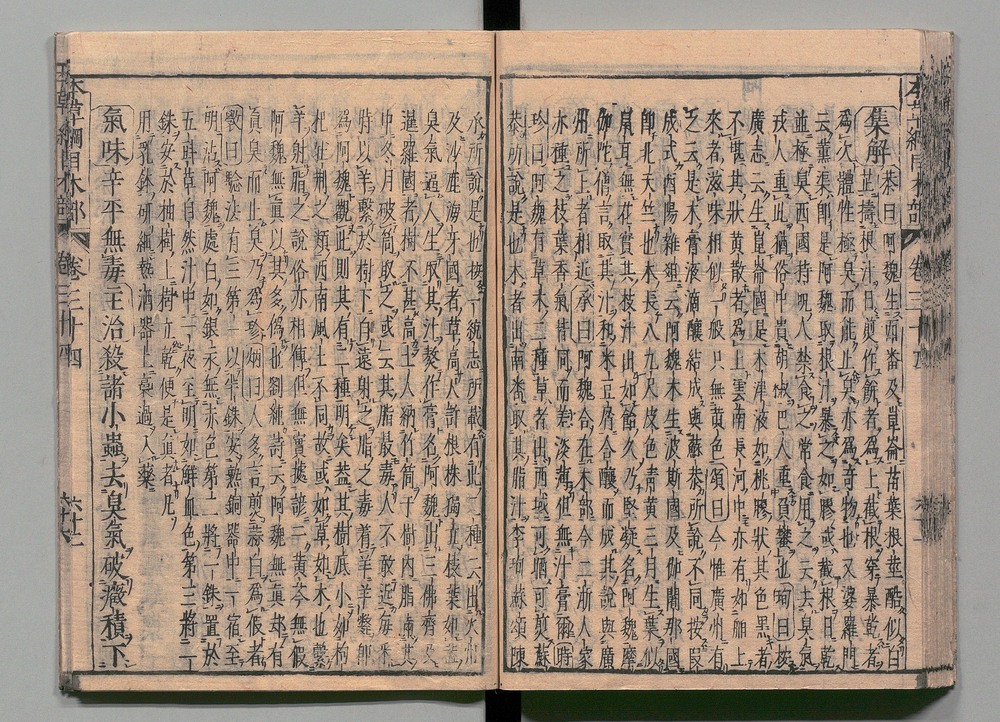 集解 恭曰阿魏生西番及崑崙苗葉根莖酷似白
芷擣根汁日煎作餅者爲上截根穿暴乾者
爲次體性極臭而能止臭亦爲奇物也又婆羅門
云薫渠即是阿魏取根汁暴之如膠或截根日乾
並極臭西國持呪人禁食之常食用之云去臭氣
戎人重此猶俗中貴胡椒巴人重負蠜也珣曰按
廣志云生崑崙國是木津液如桃膠狀其色黑者
不堪其狀黄散者爲上雲南長河中亦有如舶上
來者滋味相似一般只無黄色頌曰今惟廣州有
之云是木膏液滴釀結成與蘇恭所說不同按叚
成式酉陽雜俎云阿魏木生波斯國及伽闍那國
即北天竺也木長八九尺皮色青黄三月生葉似
鼠耳無花實其枝汁出如飴久乃堅凝名阿魏摩
伽陀僧言取其汁和米豆屑合釀而成其說與廣
州所上者相近承曰阿魏合在木部今二浙人家
亦種之枝葉香氣皆同而差淡薄但無汁膏爾時
珍曰阿魏有草木二種草者出西域可晒可煎蘇
恭所說是也木者出南番取其脂汁李珣蘇頌陳
承所說是也按一統志所載有此二種云出火州
及沙鹿海牙國者草高尺許根株獨立枝葉如盖
臭氣逼人生取其汁熬作膏名阿魏出三佛齊及
暹羅國者樹不甚高土人納竹筒于樹内脂滿其
中冬月破筒取之或云其脂最毒人不敢近每采
時以羊繫於樹下自遠射之脂之毒着羊羊斃即
爲阿魏觀此則其有二種明矣葢其樹底小如枸
杞牡荆之類西南風土不同故或如草如木也繫
羊射脂之說俗亦相傳但無實據諺云黄芩無假
阿魏無眞以其多僞也劉純詩云阿魏無眞却有
眞臭而止臭乃爲珍炳曰人多言煎蒜白爲假者
斆曰驗法有三第一以半銖安熟銅器中一宿至
明沾阿魏處白如銀永無赤色第二將一銖置於
五斗草自然汁中一夜至明如鮮血色第三將一
銖安於柚樹上樹立乾便是眞者凡
用乳鉢研細熱酒器上裛過入藥
氣味辛平無毒主治殺諸小蟲去臭氣破癥積下
卷三十四
卷三十四